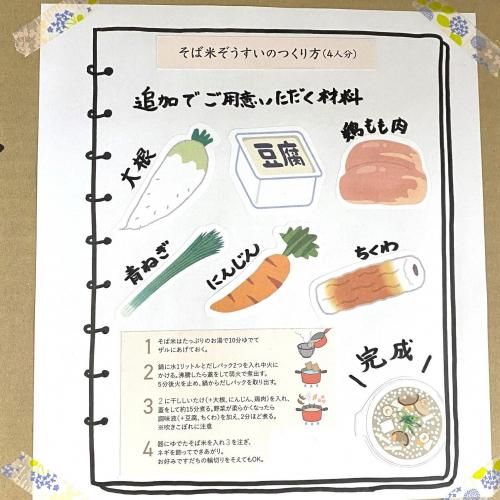 そば米ぞうすいのつくり方(4人分)
追加でご用意いただく材料
大根
豆腐
鶏もも肉
青ねぎ
にんじん
ちくわ
1 そば米はたっぷりのお湯で10分ゆでて
ザルにあげておく。
2 鍋に水1リットルとだしパック2つを入れ中火に
かける。沸騰したら蓋をして弱火で煮出す。
5分後火を止め、鍋からだしパックを取り出す。
3 2に干ししいたけ(+大根、にんじん、鶏肉)を入れ、
蓋をして約15分煮る。野菜が柔らかくなったら
調味液(+豆腐、ちくわ)を加え、2分ほど煮る。
※吹きこぼれに注意
4 器にゆでたそば米を入れ3を注ぎ、
ネギを飾ってできあがり。
お好みですだちの輪切りをそえてもOK。
完成